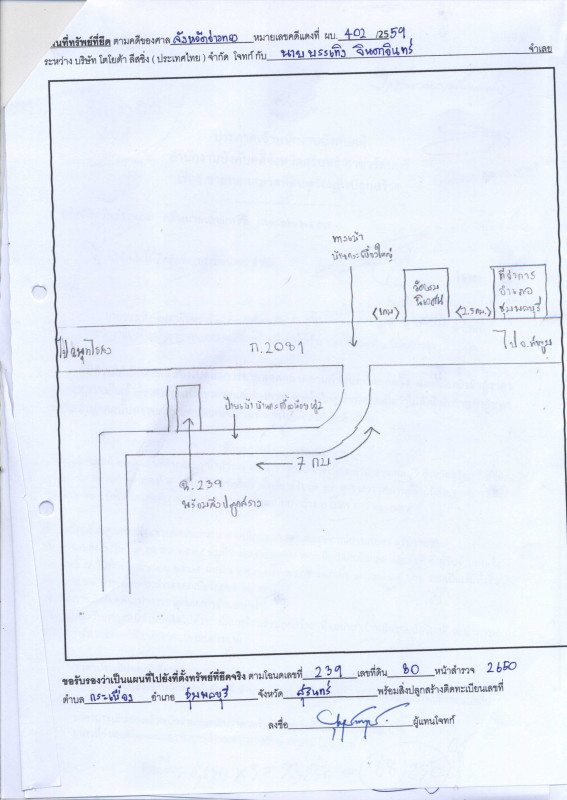 ที่ทรัพย์ที่ยึด ตามคดีของศาล จังหวัด หมายเลขคดีแดงที่ ผบ. 402 /2559
ระหว่าง บริษัท โตโยต้า ลีสซิ่ง ( ประเทศไทย ) จำกัด โจทก์ กับ นายบรรเทิง จินดาอินทร์ จำเลย
ทางเข้า
วัด
นิเวศน์
ที่ว่าการ
อำเภอ
ชุมพลบุรี
(1กม)
(2.5กม)
ไป
ถ.2081
ไป อ.
หมู่2
7 กม
ฉ.239
พร้อมสิ่งปลูกสร้าง
ขอรับรองว่าเป็นแผนที่ไปยังที่ตั้งทรัพย์ที่ยึดจริง ตามโฉนดเลขที่ 239 เลขที่ดิน 80 หน้าสำรวจ 2680
ตำบล กระเบื้อง อำเภอ ชุมพลบุรี จังหวัด สุรินทร์ พร้อมสิ่งปลูกสร้างติดทะเบียนเลขที่
ลงชื่อ ผู้แทนโจทก์